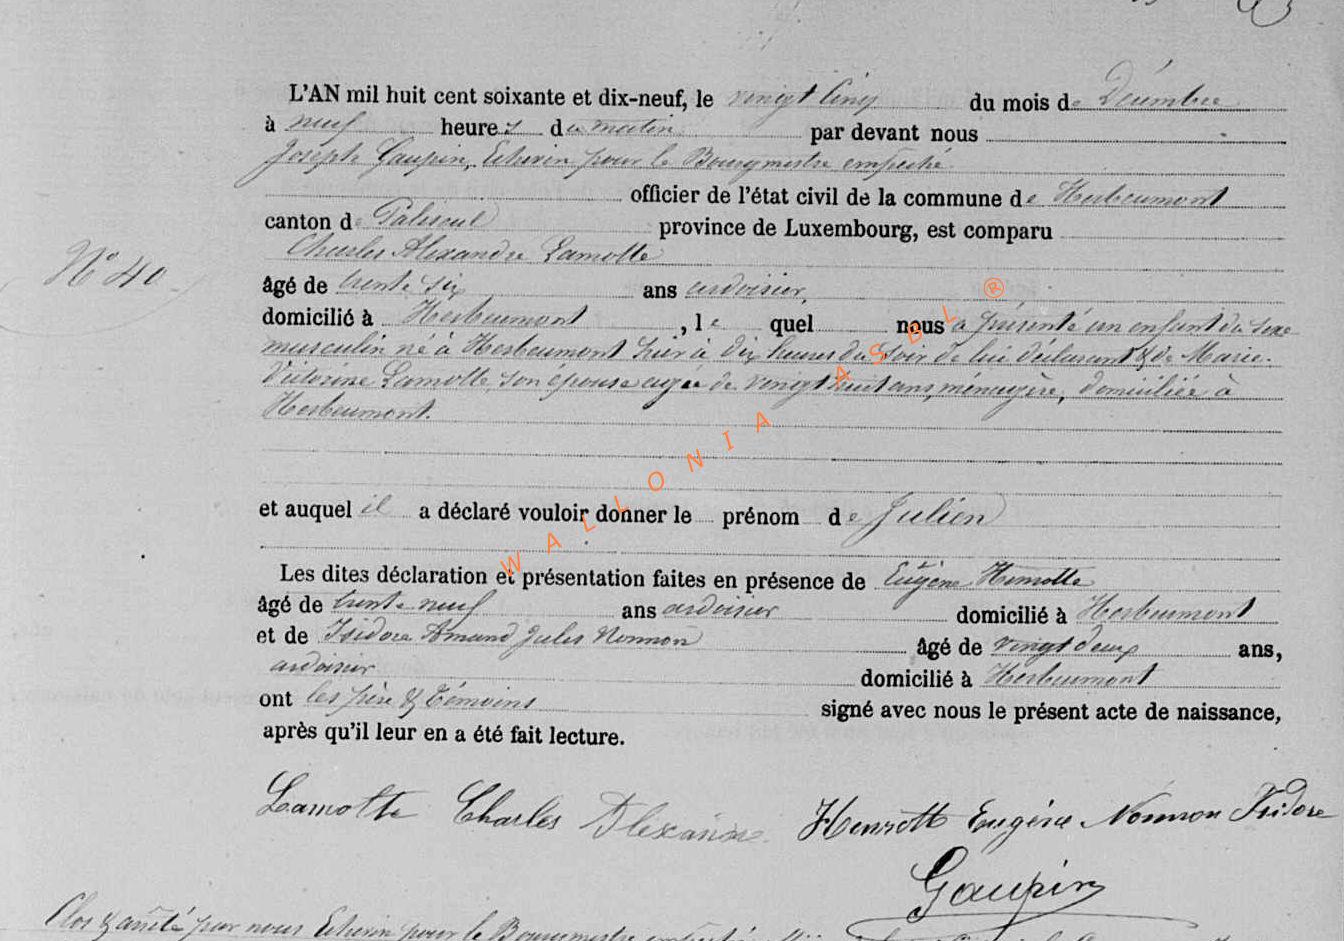 L'AN mil huit cent soixante et dix-neuf, le vingt cinq du mois de Décembre
à neuf heures du matin par devant nous
Joseph Gaupin, Echevin pour le Bourgmestre empêché
officier de l'état civil de la commune de Herbeumont
canton de Paliseul province de Luxembourg, est comparu
Charles Alexandre Lamotte
N° 40
âgé de trente six ans ardoisier,
domicilié à Herbeumont, le quel nous a présenté un enfant du sexe
musculin né à Herbeumont hier à dix heures du soir de lui déclarant & de Marie
Victorine Lamotte son épouse agée de vingt huit ans, ménagère, domiciliée à
Herbeumont.
et auquel il a déclaré vouloir donner le prénom de Julien
Les dites déclaration et présentation faites en présence de Eugène
âgé de trente neuf ans ardoisier domicilié à Herbeumont
et de Isidore Amand Jules Nonnon âgé de vingt deux ans,
ardoisier domicilié à Herbeumont
ont les père & témoins signé avec nous le présent acte de naissance,
après qu'il leur en a été fait lecture.
Lamotte Charles Alexandre Eugène Nonnon Isidore
Gaupin
Clos & arrêté par nous Echevin pour le Bourgmestre empêché
WALLONIA ASBL ®